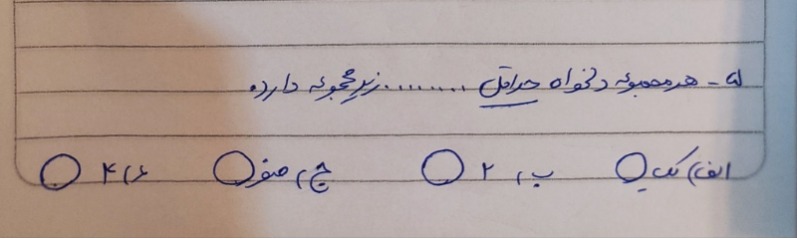 ۵- هر مجموعه دلخواه حداقل ......... زیرمجموعه دارد.
الف) یک ب) ۲ ج) صفر د) ۴